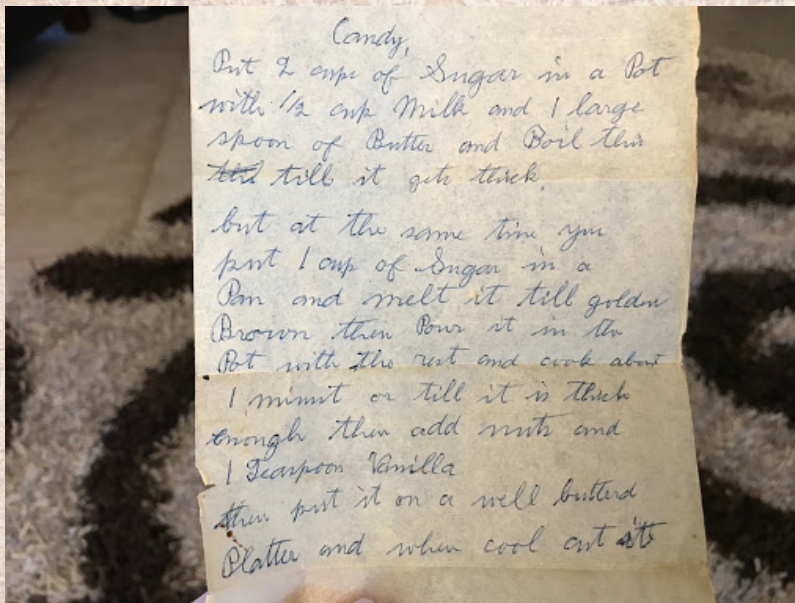 Candy,
Put 2 cups of Sugar in a Pot
with 1/2 cup Milk and 1 large
spoon of Butter and Boil this
till it gets thick.
but at the same time you
put 1 cup of Sugar in a
Pan and melt it till golden
Brown then Pour it in the
Pot with the rest and cook about
1 minit or till it is thick
enough then add nuts and
1 Teaspoon Vanilla
then put it on a well butterd
Platter and when cool cut it